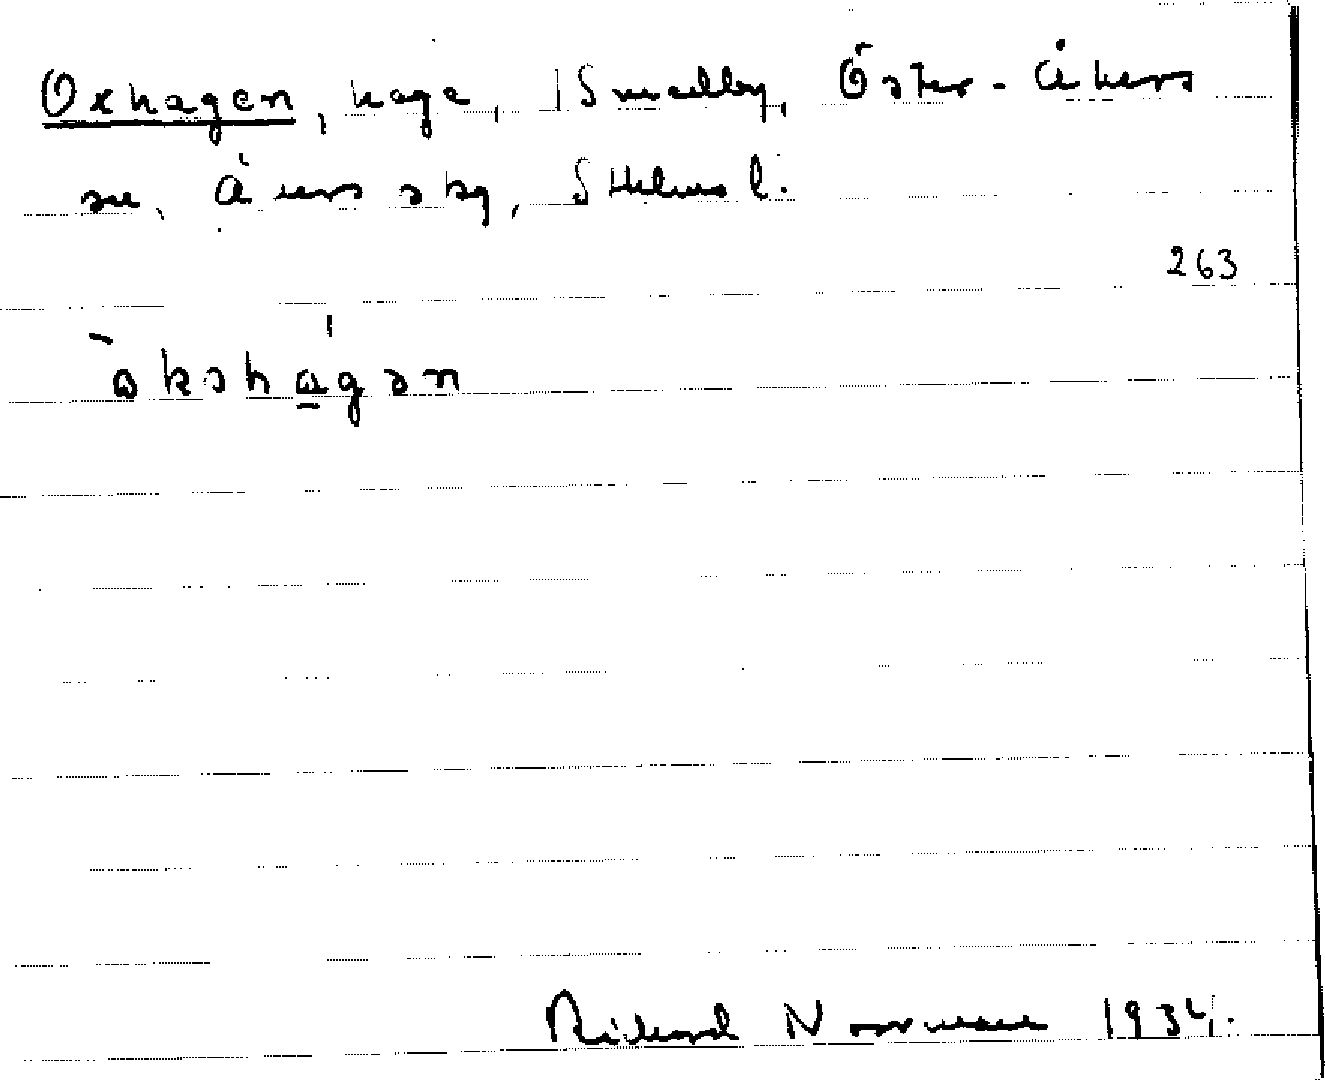 Oxhagen, hage, Smedby, Öster-Åkers
sn, Åkers skg, Sthlms l.
263
òkshagan
Rickard Norrman 1934.